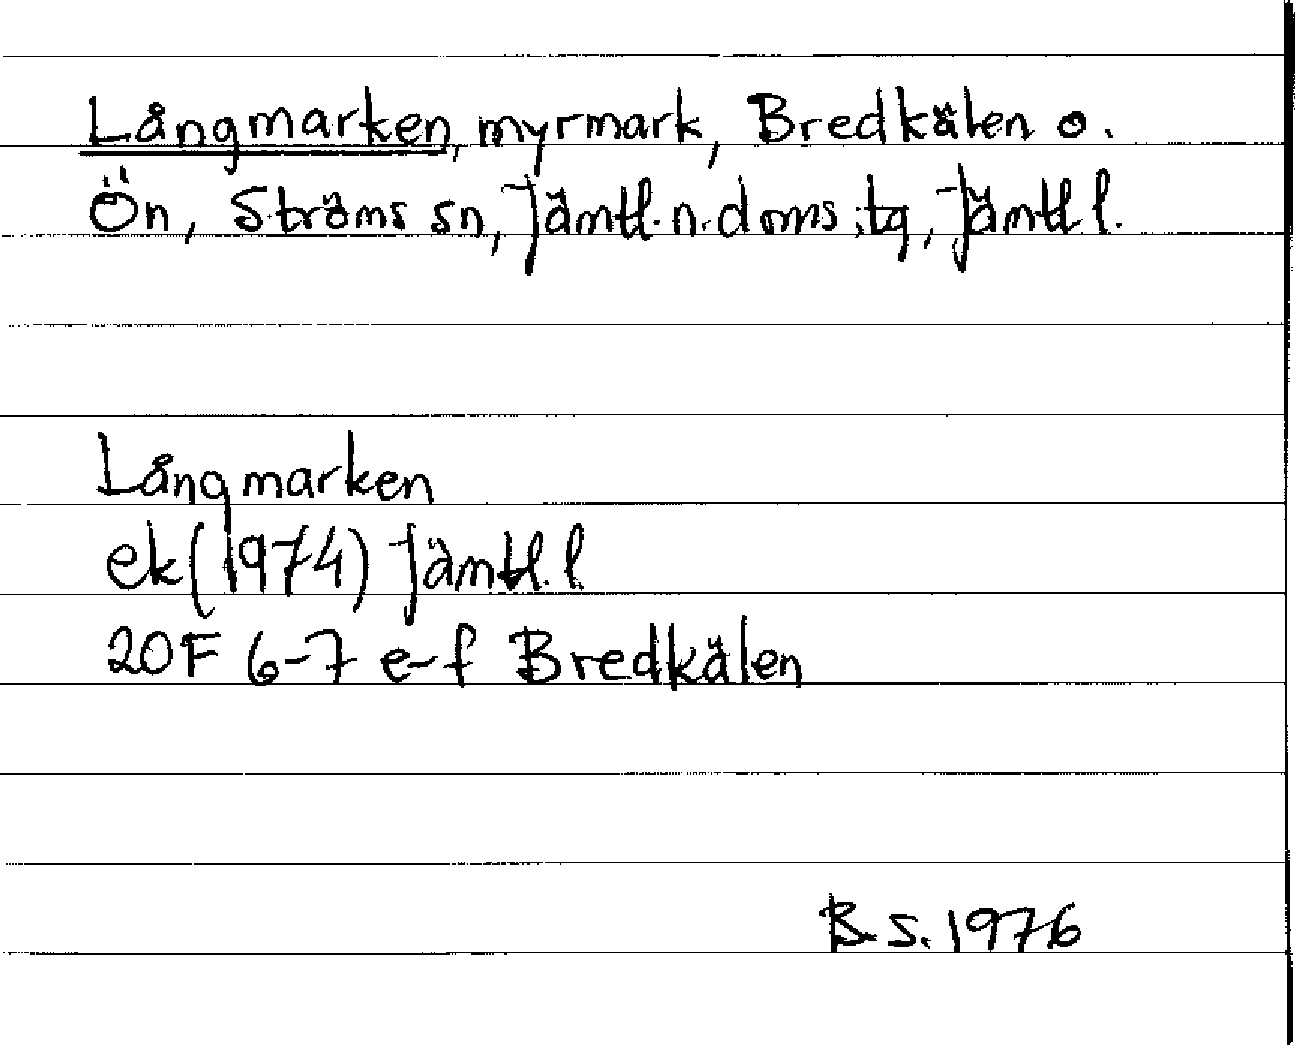 Långmarken, myrmark, Bredkälen o.
Ön, Ströms sn, Jämtl. n. doms.tg, Jämtl. l.
Långmarken
ek (1974) Jämtl. l
20F 6-7 e-f Bredkälen
B S. 1976